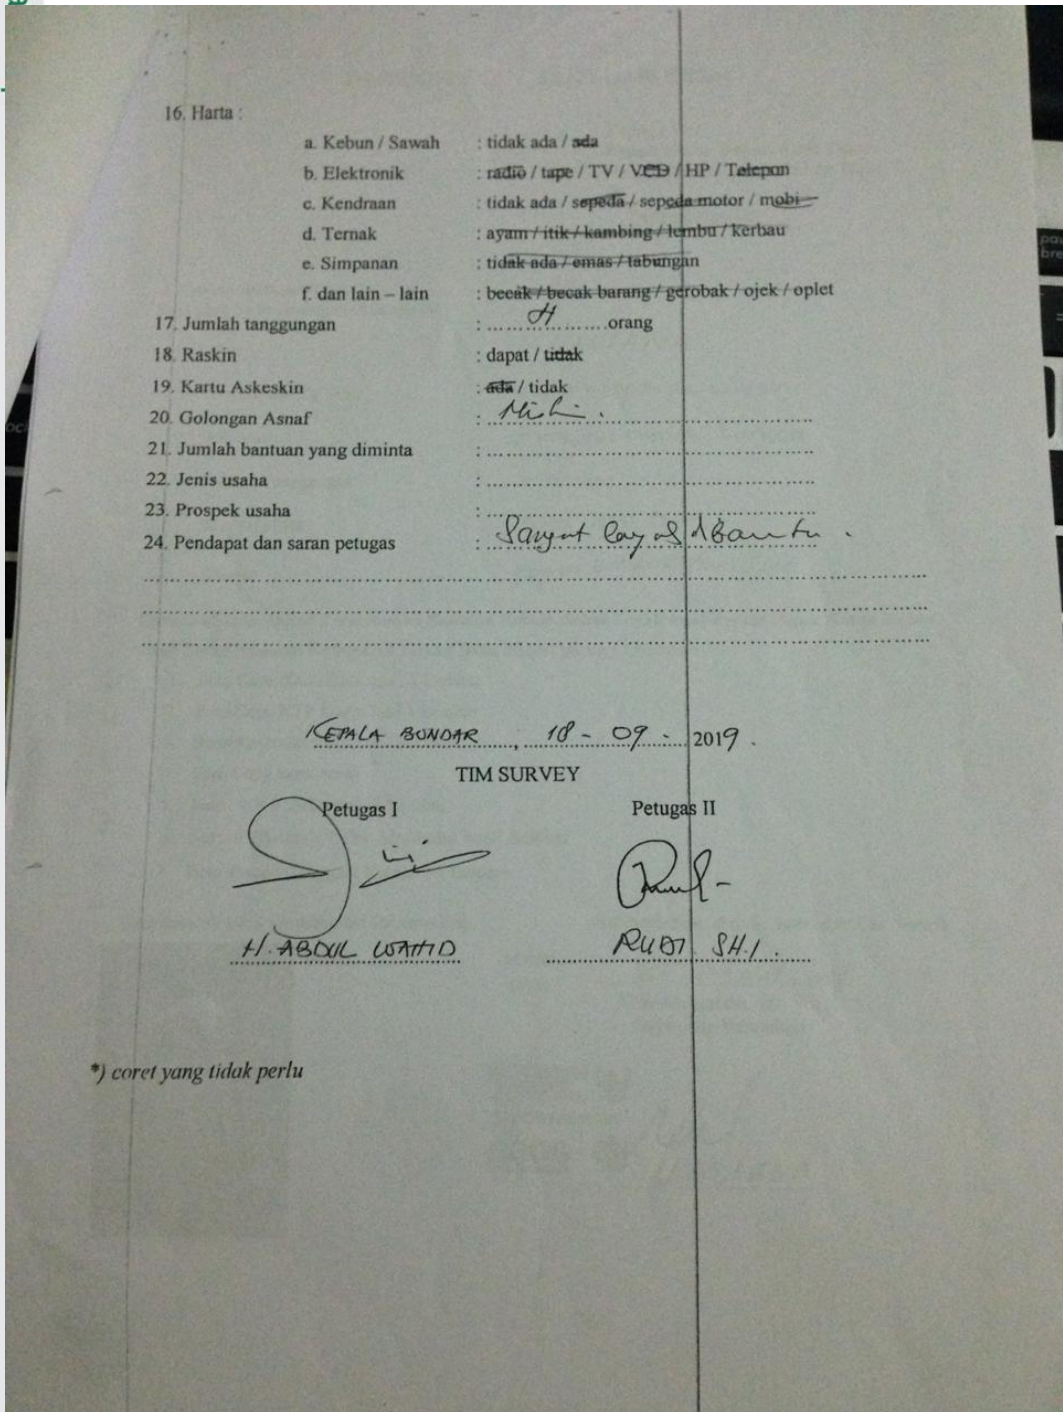 16. Harta :
a. Kebun / Sawah : tidak ada / ada
b. Elektronik : radio / tape / TV / VCD / HP / Telepon
c. Kendraan : tidak ada / sepeda / sepeda motor / mobi
d. Ternak : ayam / itik / kambing / lembu / kerbau
e. Simpanan : tidak ada / emas / tabungan
f. dan lain – lain : becak / becak barang / gerobak / ojek / oplet
17. Jumlah tanggungan : ..................orang
18. Raskin : dapat / tidak
19. Kartu Askeskin : ada / tidak
20. Golongan Asnaf : Miskin.
21. Jumlah bantuan yang diminta :
22. Jenis usaha :
23. Prospek usaha :
24. Pendapat dan saran petugas : Sangat layak dibantu.
KEPALA BUNDAR, 18 - 09 - 2019.
TIM SURVEY
Petugas I Petugas II
H. ABDUL WAHID RUDI SH.I.
*) coret yang tidak perlu